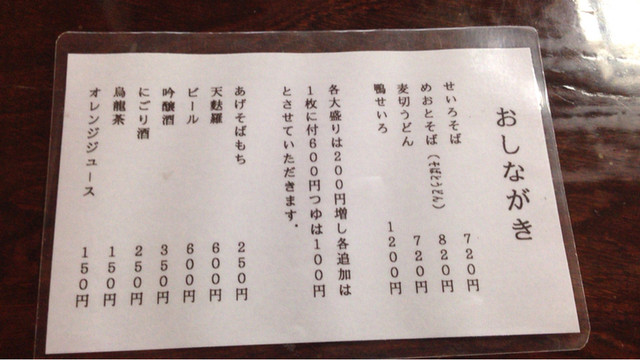 おしながき
せいろそば 720円
めおとそば(そばとうどん) 820円
麦切うどん 720円
鴨せいろ 1200円
各大盛りは200円増し各追加は
1枚に付600円つゆは100円
とさせていただきます.
あげそばもち 250円
天麩羅 600円
ビール 600円
吟醸酒 350円
にごり酒 250円
烏龍茶 150円
オレンジジュース 150円